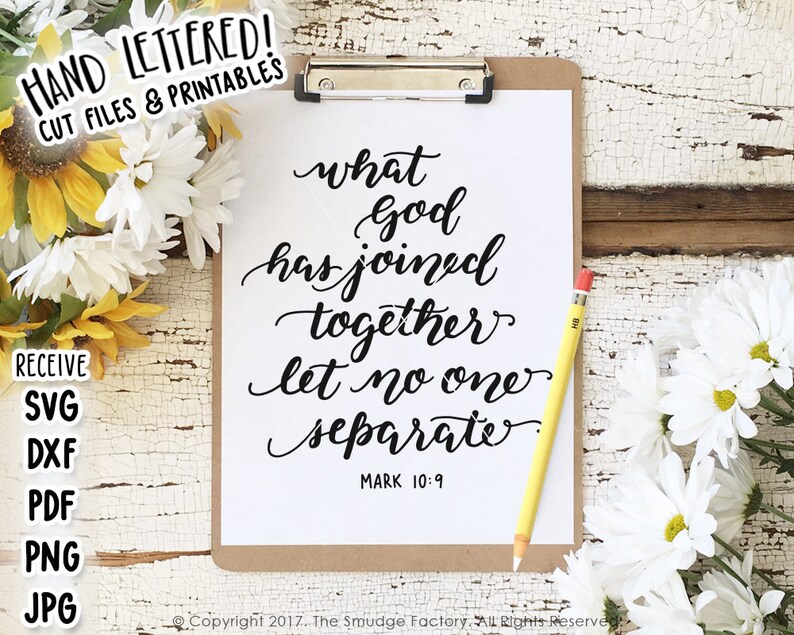 HAND LETTERED!
CUT FILES & PRINTABLES
what
God
has joined
together
let no one
separate
MARK 10:9
HB
RECEIVE
SVG
DXF
PDF
PNG
JPG
© Copyright 2017. The Smudge Factory. All Rights Reserved.